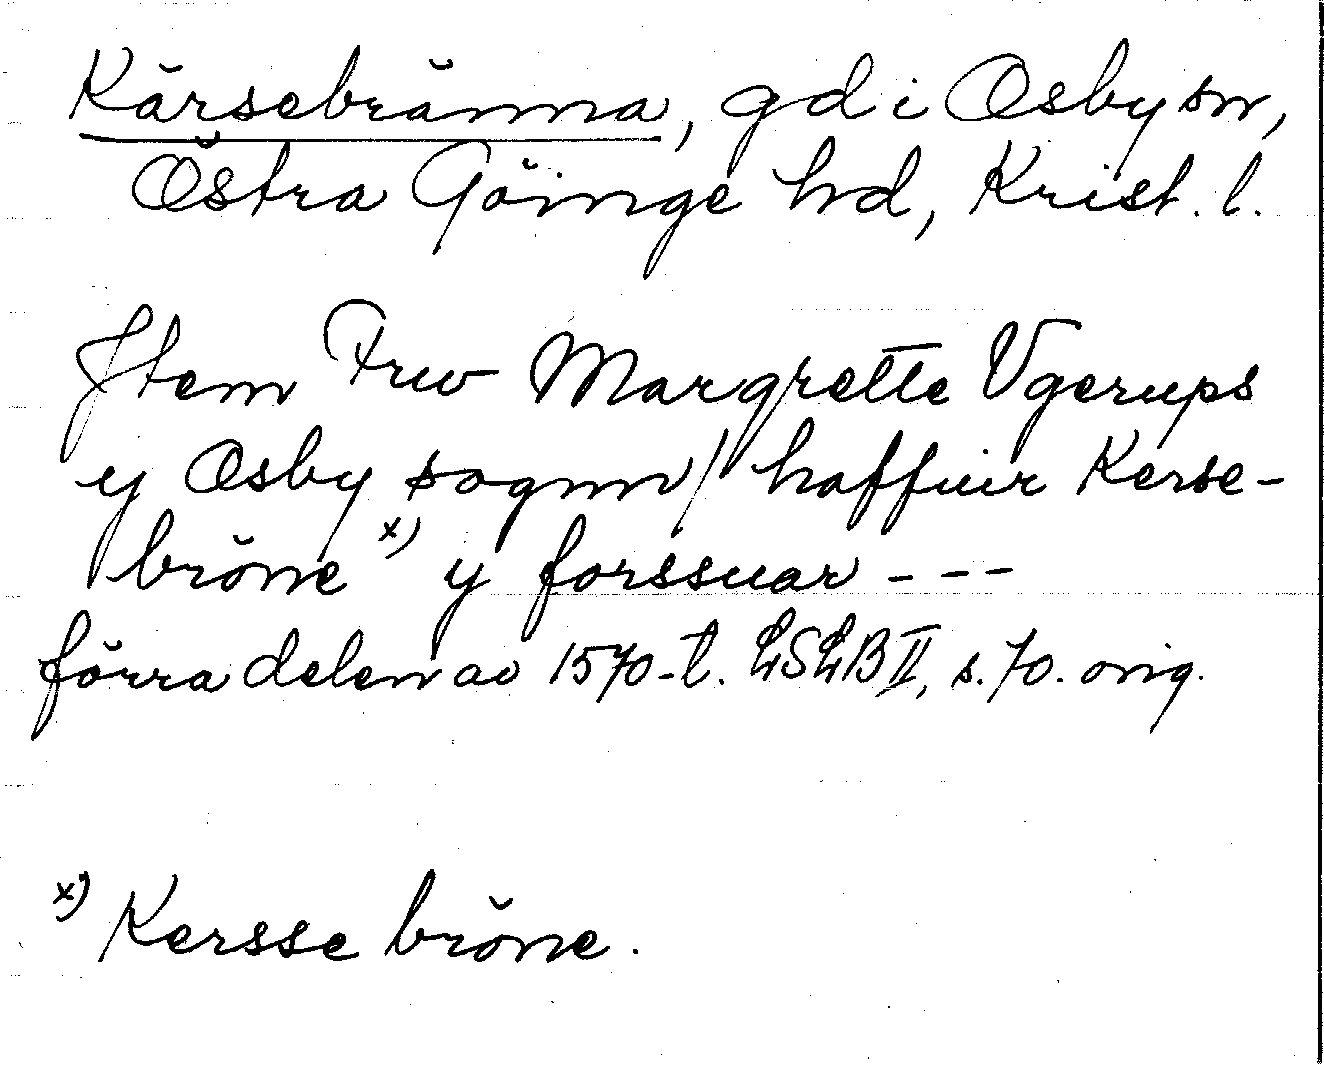 Kärsebränna, gd i Osby sn,
Östra Göinge hd, Krist. l.
Item Frw Margrette Vgerups
y Osby sognn/ haffuir Kerse-
bröne x) y forssuar - - -
förra delen av 1570-t. LSLB II, s. 70. orig.
x) Kersse bröne.